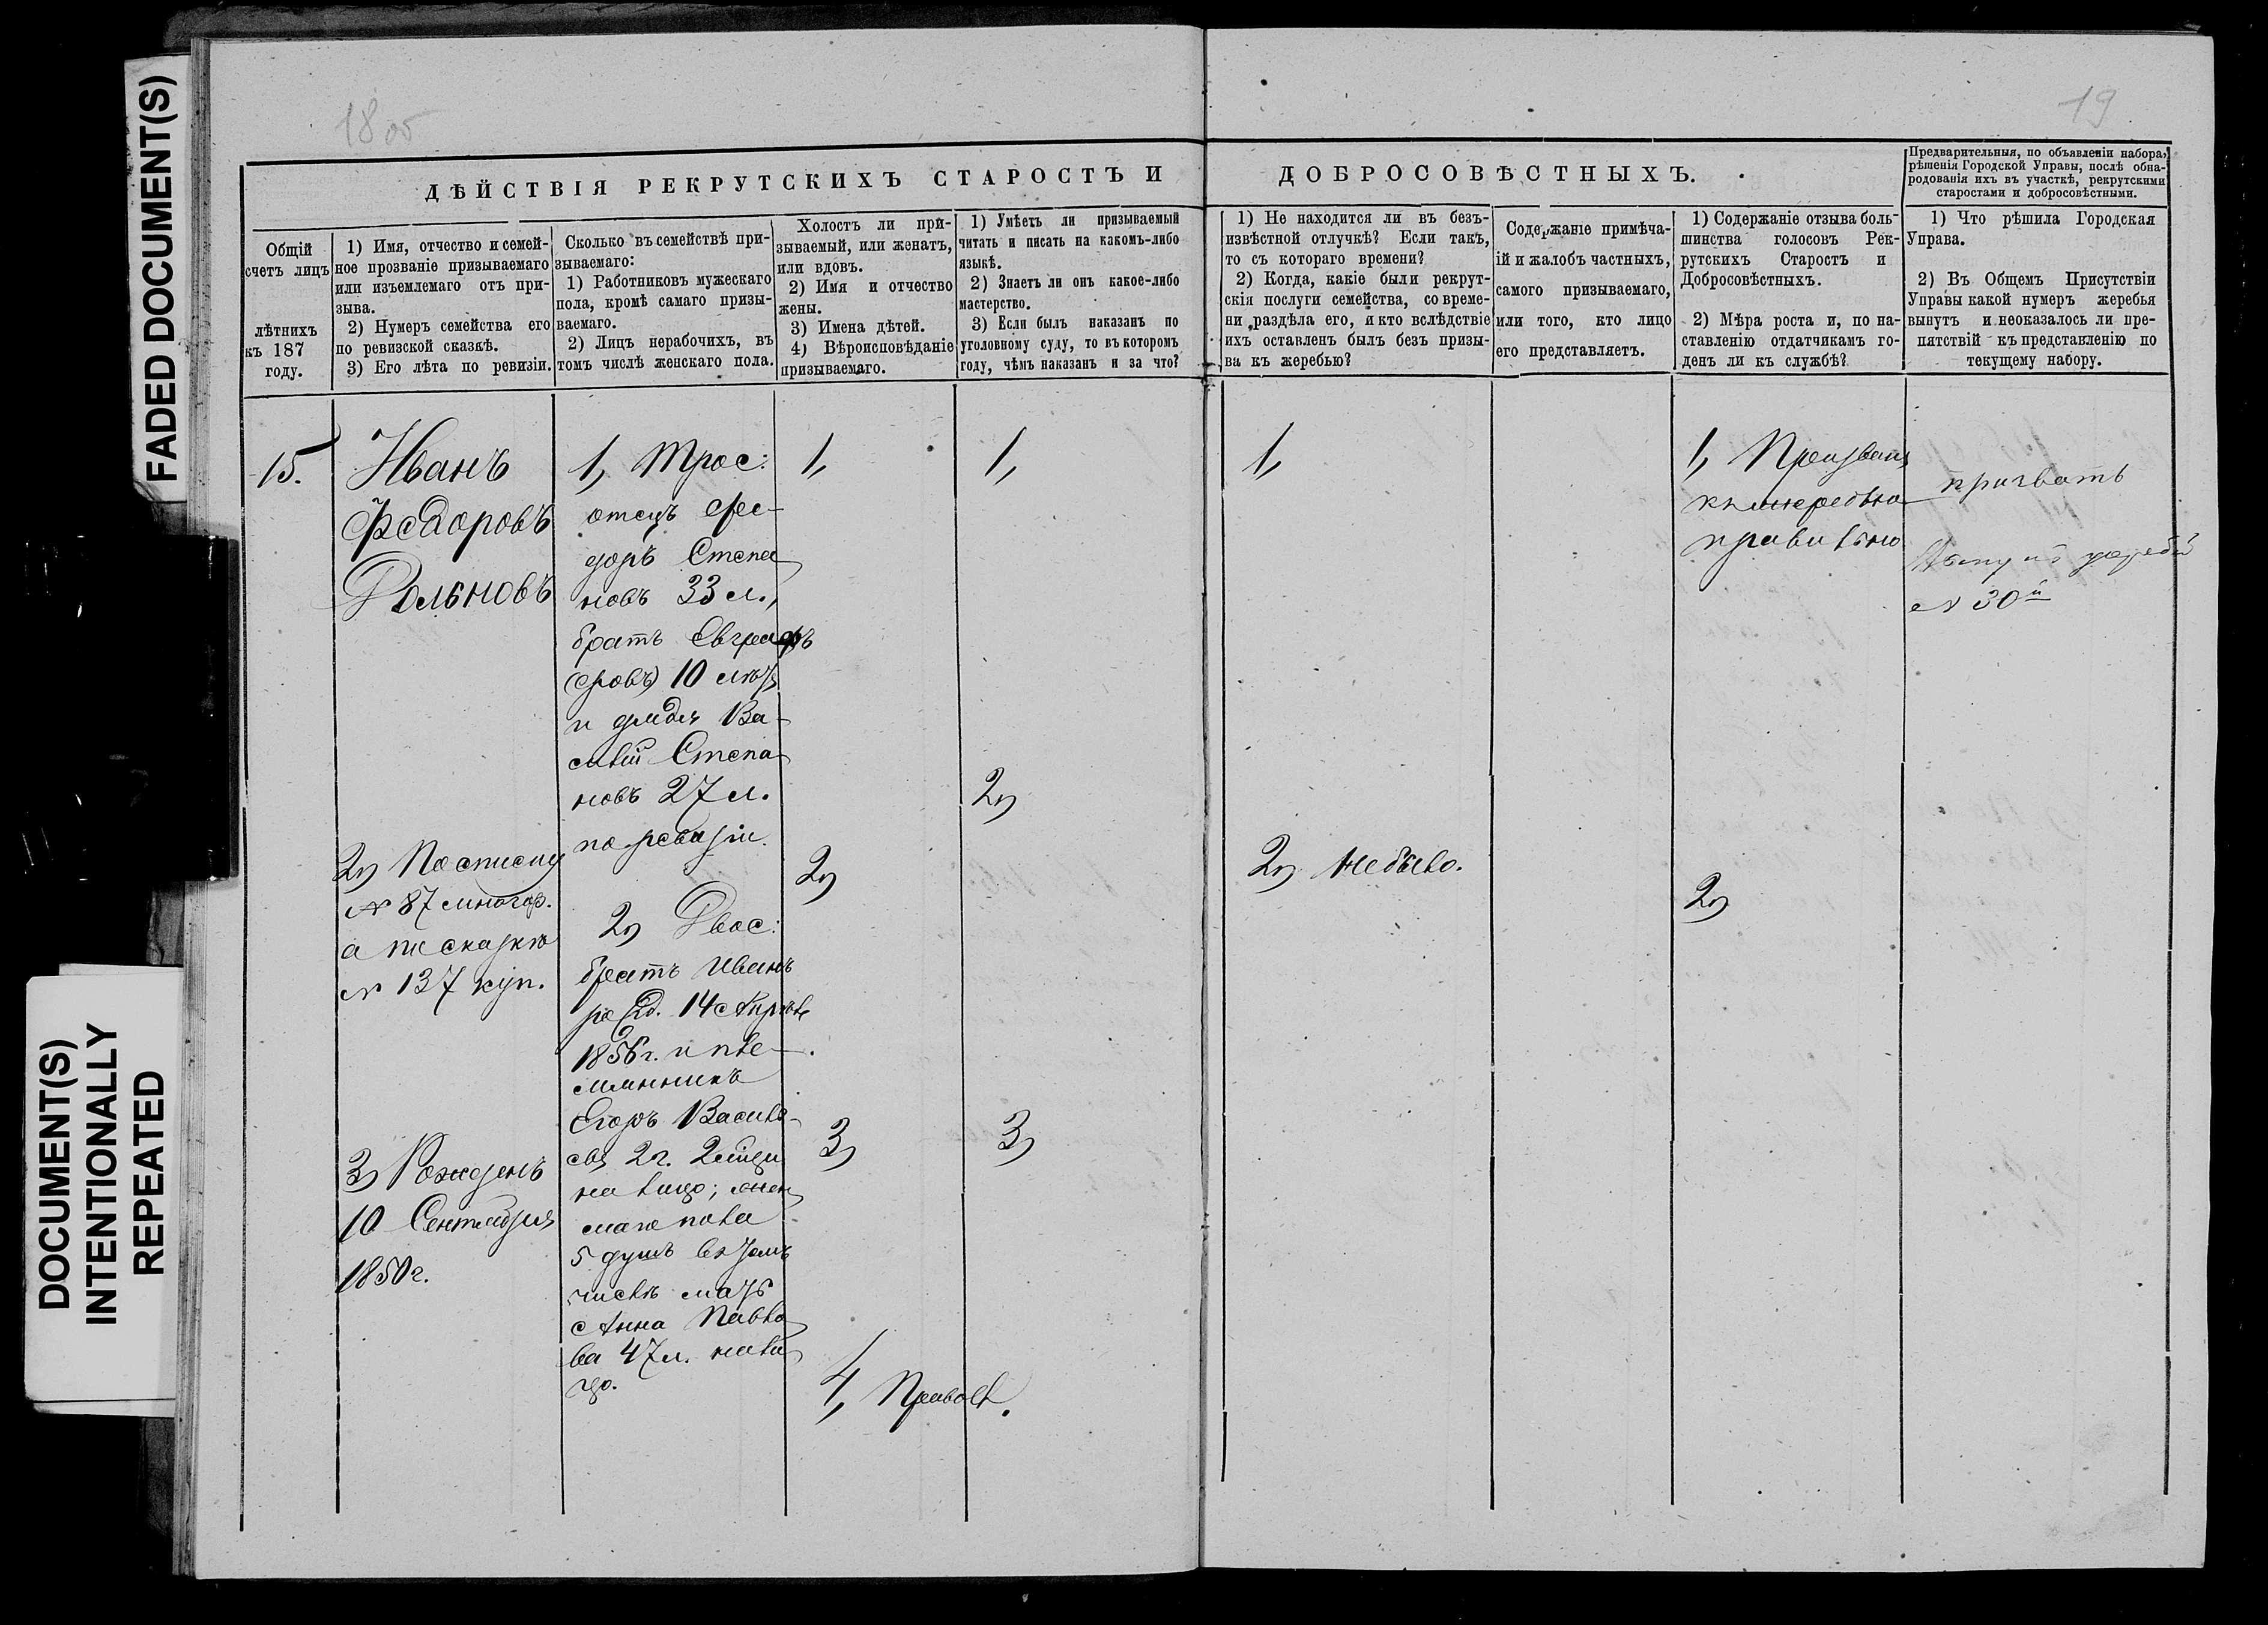 FADED DOCUMENT(S)
DOCUMENT(S)
INTENTIONALLY
REPEATED
18 об
19
ДѢЙСТВІЯ РЕКРУТСКИХЪ СТАРОСТЪ И ДОБРОСОВѢСТНЫХЪ.
Предварительныя, по объявленіи набора,
рѣшенія Городской Управы, послѣ обна-
родованія ихъ въ участкѣ, рекрутскими
старостами и добросовѣстными.
Общій
счетъ лицъ
лѣтнихъ
къ 187
году.
1) Имя, отчество и семей-
ное прозваніе призываемаго
или изъемлемаго отъ при-
зыва.
2) Нумеръ семейства его
по ревизской сказкѣ.
3) Его лѣта по ревизіи.
Сколько въ семействѣ при-
зываемаго:
1) Работниковъ мужескаго
пола, кромѣ самаго призы-
ваемаго.
2) Лицъ нерабочихъ, въ
томъ числѣ женскаго пола.
Холостъ ли при-
зываемый, или женатъ,
или вдовъ.
2) Имя и отчество
жены.
3) Имена дѣтей.
4) Вѣроисповѣданіе
призываемаго.
1) Умѣетъ ли призываемый
читать и писать на какомъ-либо
языкѣ.
2) Знаетъ ли онъ какое-либо
мастерство.
3) Если былъ наказанъ по
уголовному суду, то въ которомъ
году, чѣмъ наказанъ и за что?
1) Не находится ли въ безъ-
извѣстной отлучкѣ? Если такъ,
то съ котораго времени?
2) Когда, какіе были рекрут-
скія послуги семейства, со време-
ни раздѣла его, и кто вслѣдствіе
ихъ оставленъ былъ безъ призы-
ва къ жеребью?
Содержаніе примѣча-
ій и жалобъ частныхъ,
самого призываемаго,
или того, кто лицо
его представляетъ.
1) Содержаніе отзыва боль-
шинства голосовъ Рек-
рутскихъ Старостъ и
Добросовѣстныхъ.
2) Мѣра роста и, по на-
ставленію отдатчикамъ го-
денъ ли къ службѣ?
1) Что рѣшила Городская
Управа.
2) Въ Общемъ Присутствіи
Управы какой нумеръ жеребья
вынутъ и неоказалось ли пре-
пятствій къ представленію по
текущему набору.
15.
Иванъ
Федоровъ
2) По списку
№ 87 многор.
а по сказкѣ
№ 137 куп.
3) Рожденъ
10 Сентября
1850 г.
1, Трое:
отецъ Фе-
доръ Степа
новъ 33 л.,
братъ Евграфъ
10 лѣтъ
и дядя Ва-
силій Степа
новъ 27 л.
по ревизіи.
2) Двое:
братъ Иванъ
рожд. 14 Апрѣля
1856 г. и пле-
мянникъ
Егоръ Василь-
евъ 2 г.
на лицо; жен
скаго пола
5 душъ въ томъ
числѣ мать
Анна Павло
ва 47 л. на ли
цо.
1,
2)
3)
4, Правосл.
1,
2)
3)
1,
2) Не было.
1, Призвать
къ жеребью
правильно
2)
призвать
Вынутъ жребій
№ 30й